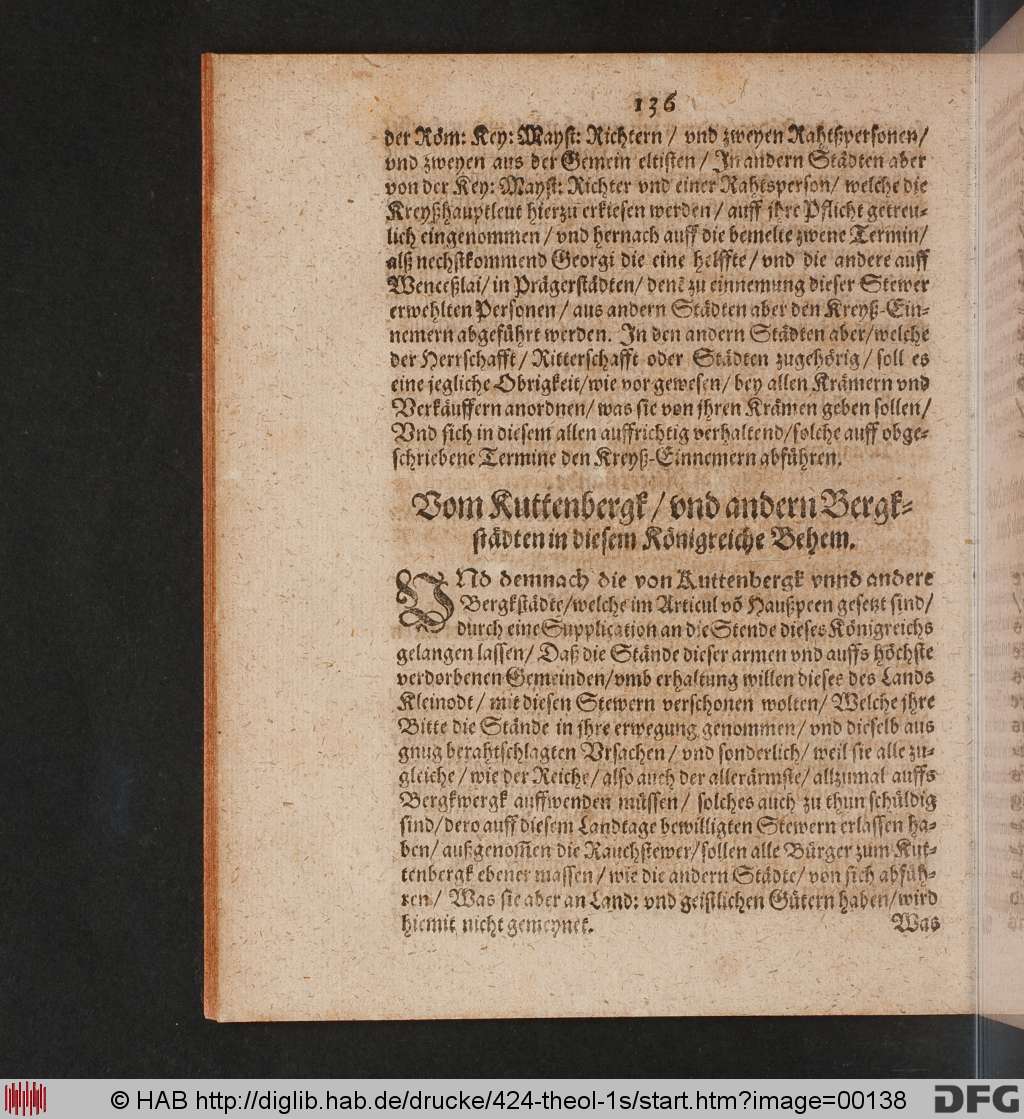 136
der Röm: Key: Mayst: Richtern / vnd zweyen Rahtßpersonen/
vnd zweyen aus der Gemein eltisten / In andern Städten aber
von der Key: Mayst: Richter vnd einer Rahtsperson/ welche die
Kreyßhauptleut hierzu erkiesen werden / auff jhre Pflicht getreu-
lich eingenommen / vnd hernach auff die bemelte zwene Termin/
alß nechstkommend Georgi die eine helffte / vnd die andere auff
Wenceßlai/ in Prägerstädten/ denē zu einnemung dieser Stewer
erwehlten Personen / aus andern Städten aber den Kreyß-Ein-
nemern abgeführt werden. In den andern Städten aber/welche
der Herrschafft / Ritterschafft oder Städten zugehörig / soll es
eine jegliche Obrigkeit/wie vor gewesen/ bey allen Krämern vnd
Verkäuffern anordnen/ was sie von jhren Krämen geben sollen/
Vnd sich in diesem allen auffrichtig verhaltend/solche auff obge-
schriebene Termine den Kreyß-Einnemern abführen.
Vom Kuttenbergk / vnd andern Bergk-
städten in diesem Königreiche Behem.
VNd demnach die von Kuttenbergk vnnd andere
Bergkstädte/welche im Articul vō Haußpeen gesetzt sind/
durch eine Supplication an die Stende dieses Königreichs
gelangen lassen/ Daß die Stände dieser armen vnd auffs höchste
verdorbenen Gemeinden/vmb erhaltung willen dieses des Lands
Kleinodt / mit diesen Stewern verschonen wolten/ Welche jhre
Bitte die Stände in jhre erwegung genommen/ vnd dieselb aus
gnug berahtschlagten Vrsachen / vnd sonderlich/ weil sie alle zu-
gleiche / wie der Reiche / also auch der allerärmste/ allzumal auffs
Bergkwergk auffwenden müssen / solches auch zu thun schüldig
sind/dero auff diesem Landtage bewilligten Stewern erlassen ha-
ben/ außgenom̄en die Rauchstewer/sollen alle Bürger zum Kut-
tenbergk ebener massen / wie die andern Städte/ von sich abfüh-
ren/ Was sie aber an Land: vnd geistlichen Gütern haben/wird
hiemit nicht gemeynet. Was
© HAB http://diglib.hab.de/drucke/424-theol-1s/start.htm?image=00138
DFG